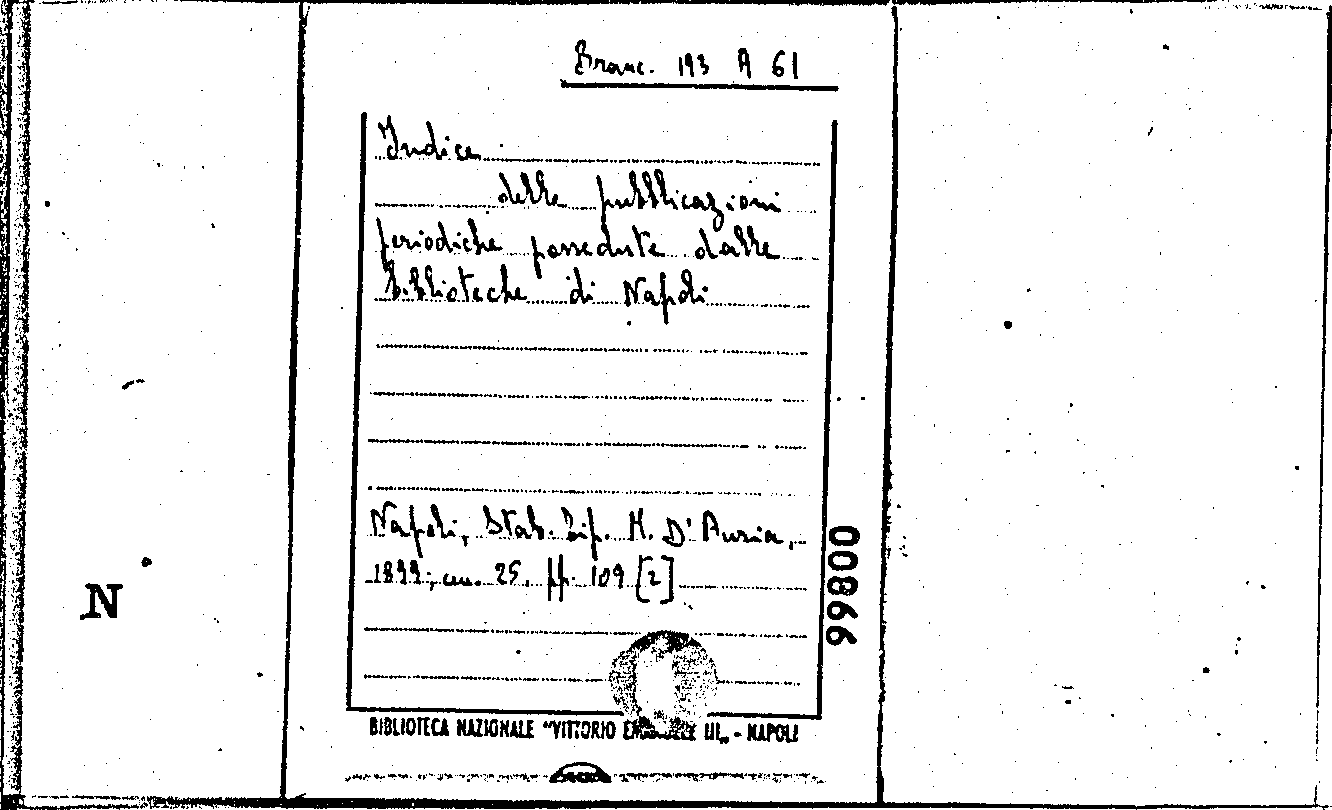 Branc. 193 A 61
Indice
delle pubblicazioni
periodiche possedute dalle
biblioteche di Napoli
Napoli, Stab. Tip. M. D'Auria,
1899; cm. 25, pp. 109 [2]
00866
N
BIBLIOTECA NAZIONALE "VITTORIO EMANUELE III„ - NAPOLI